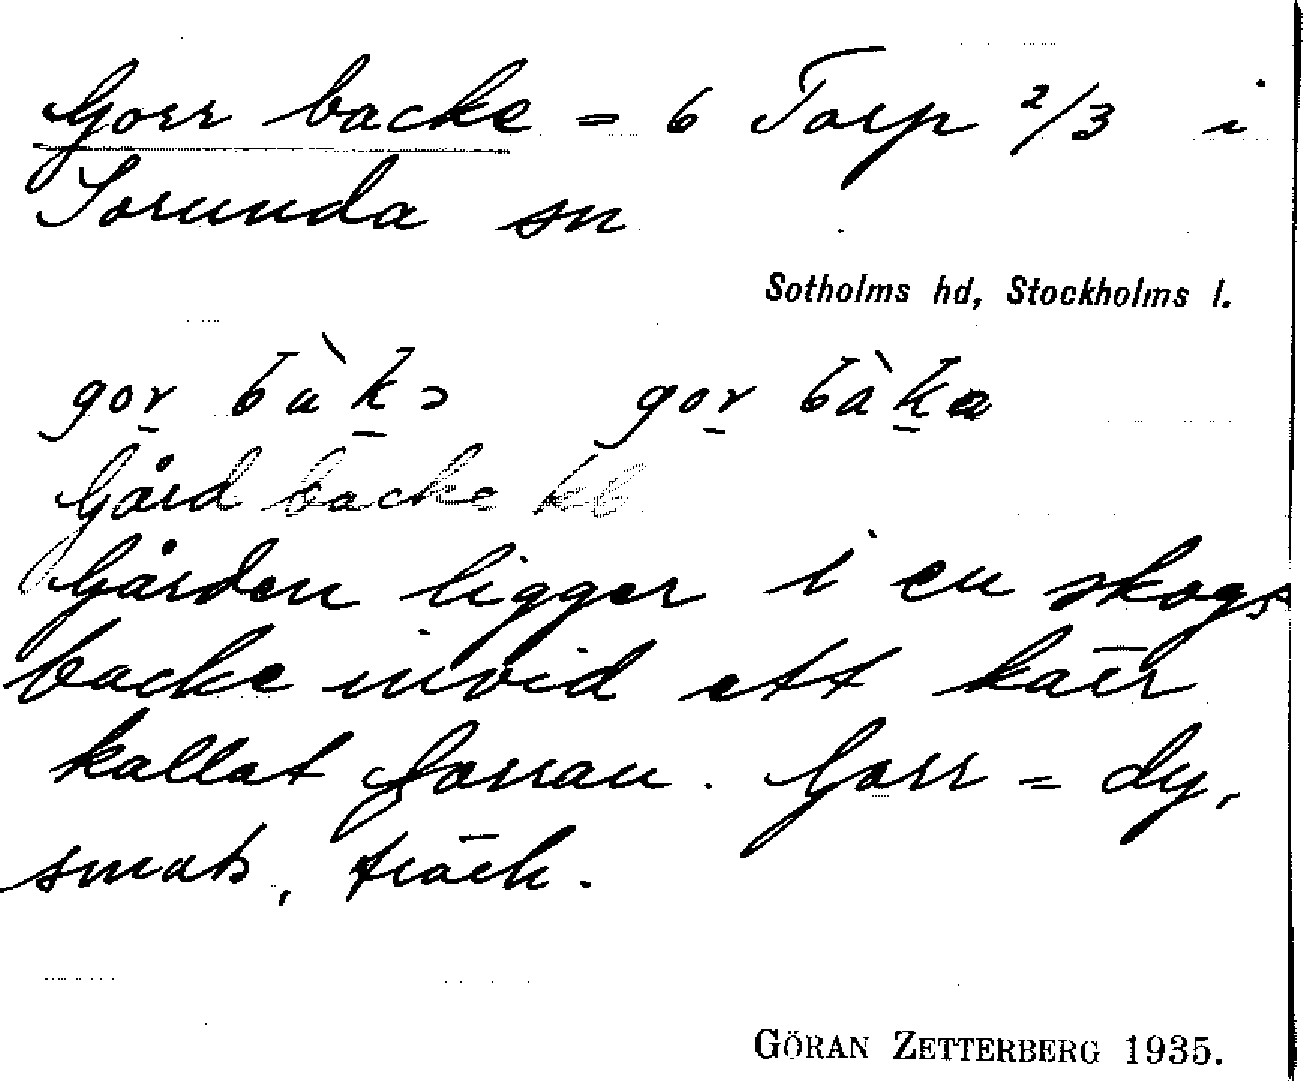 Gorr backe = 6 Torp 2/3 i
Sorunda sn
Sotholms hd, Stockholms l.
gor bàkɔ gor bàka
Gård backe
Gården ligger i en skogs
backe invid ett kärr
kallat Gorran. Gorr = dy,
smuts, träck.
GÖRAN ZETTERBERG 1935.